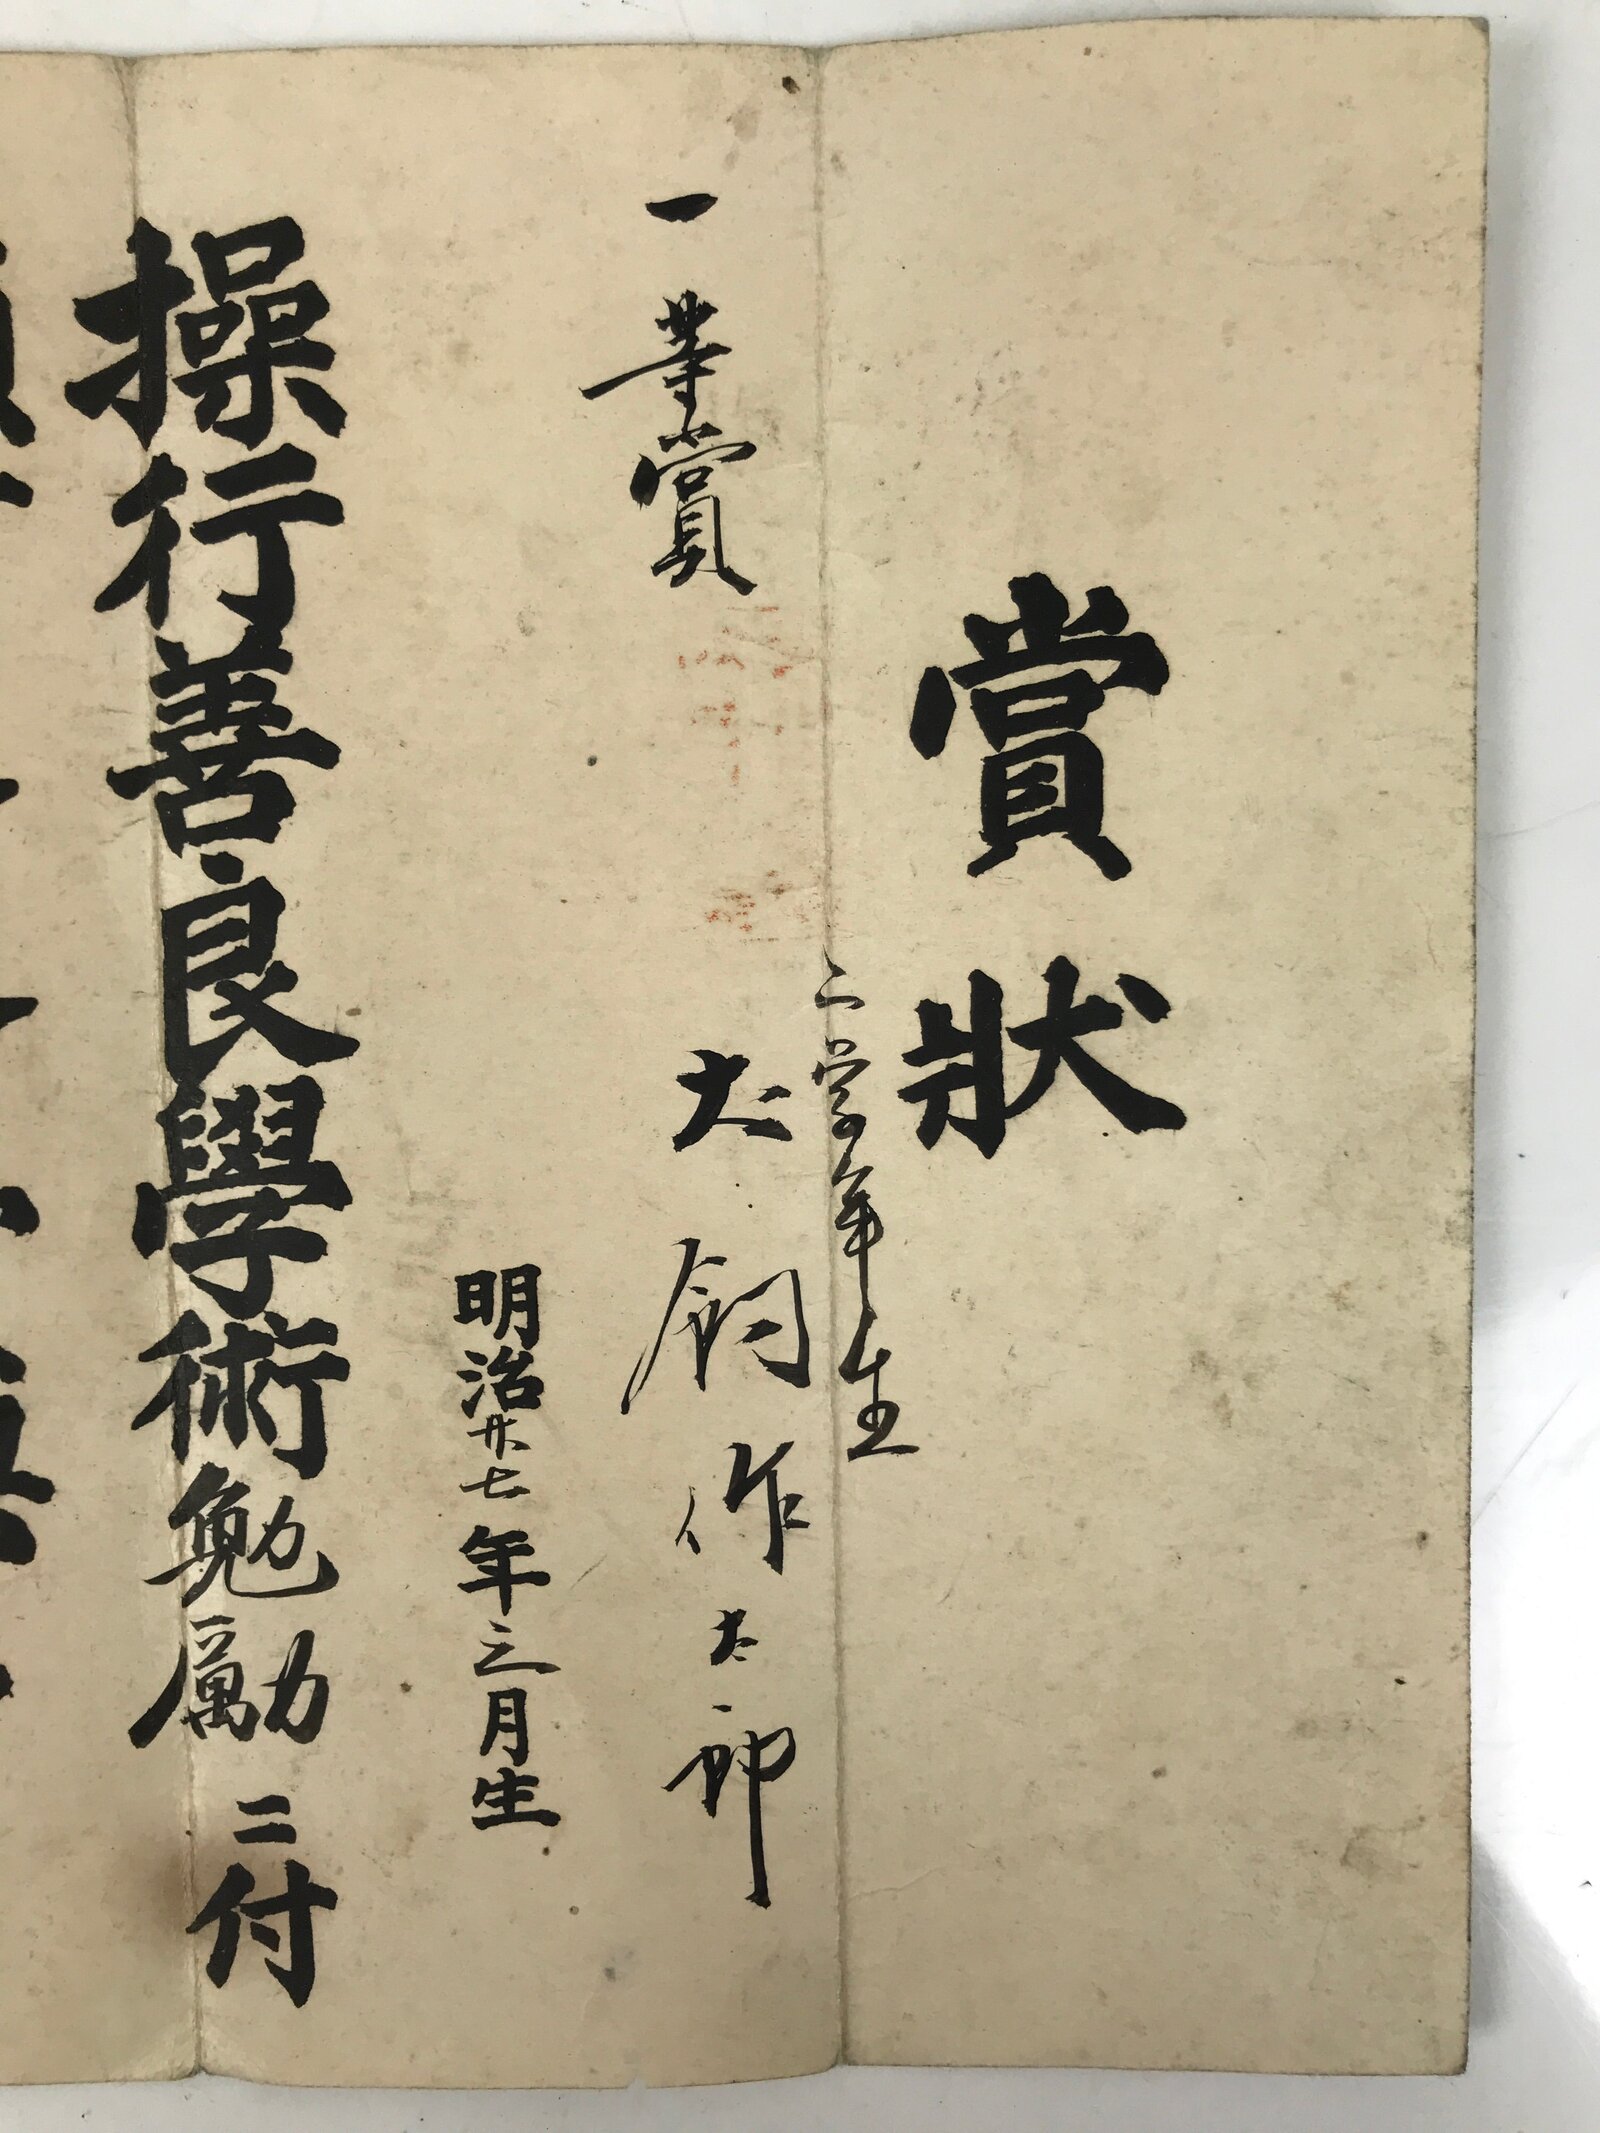 賞狀
二学年生
一等賞
大 作太郎
明治廿七年三月生
操行善良學術勉勵ニ付